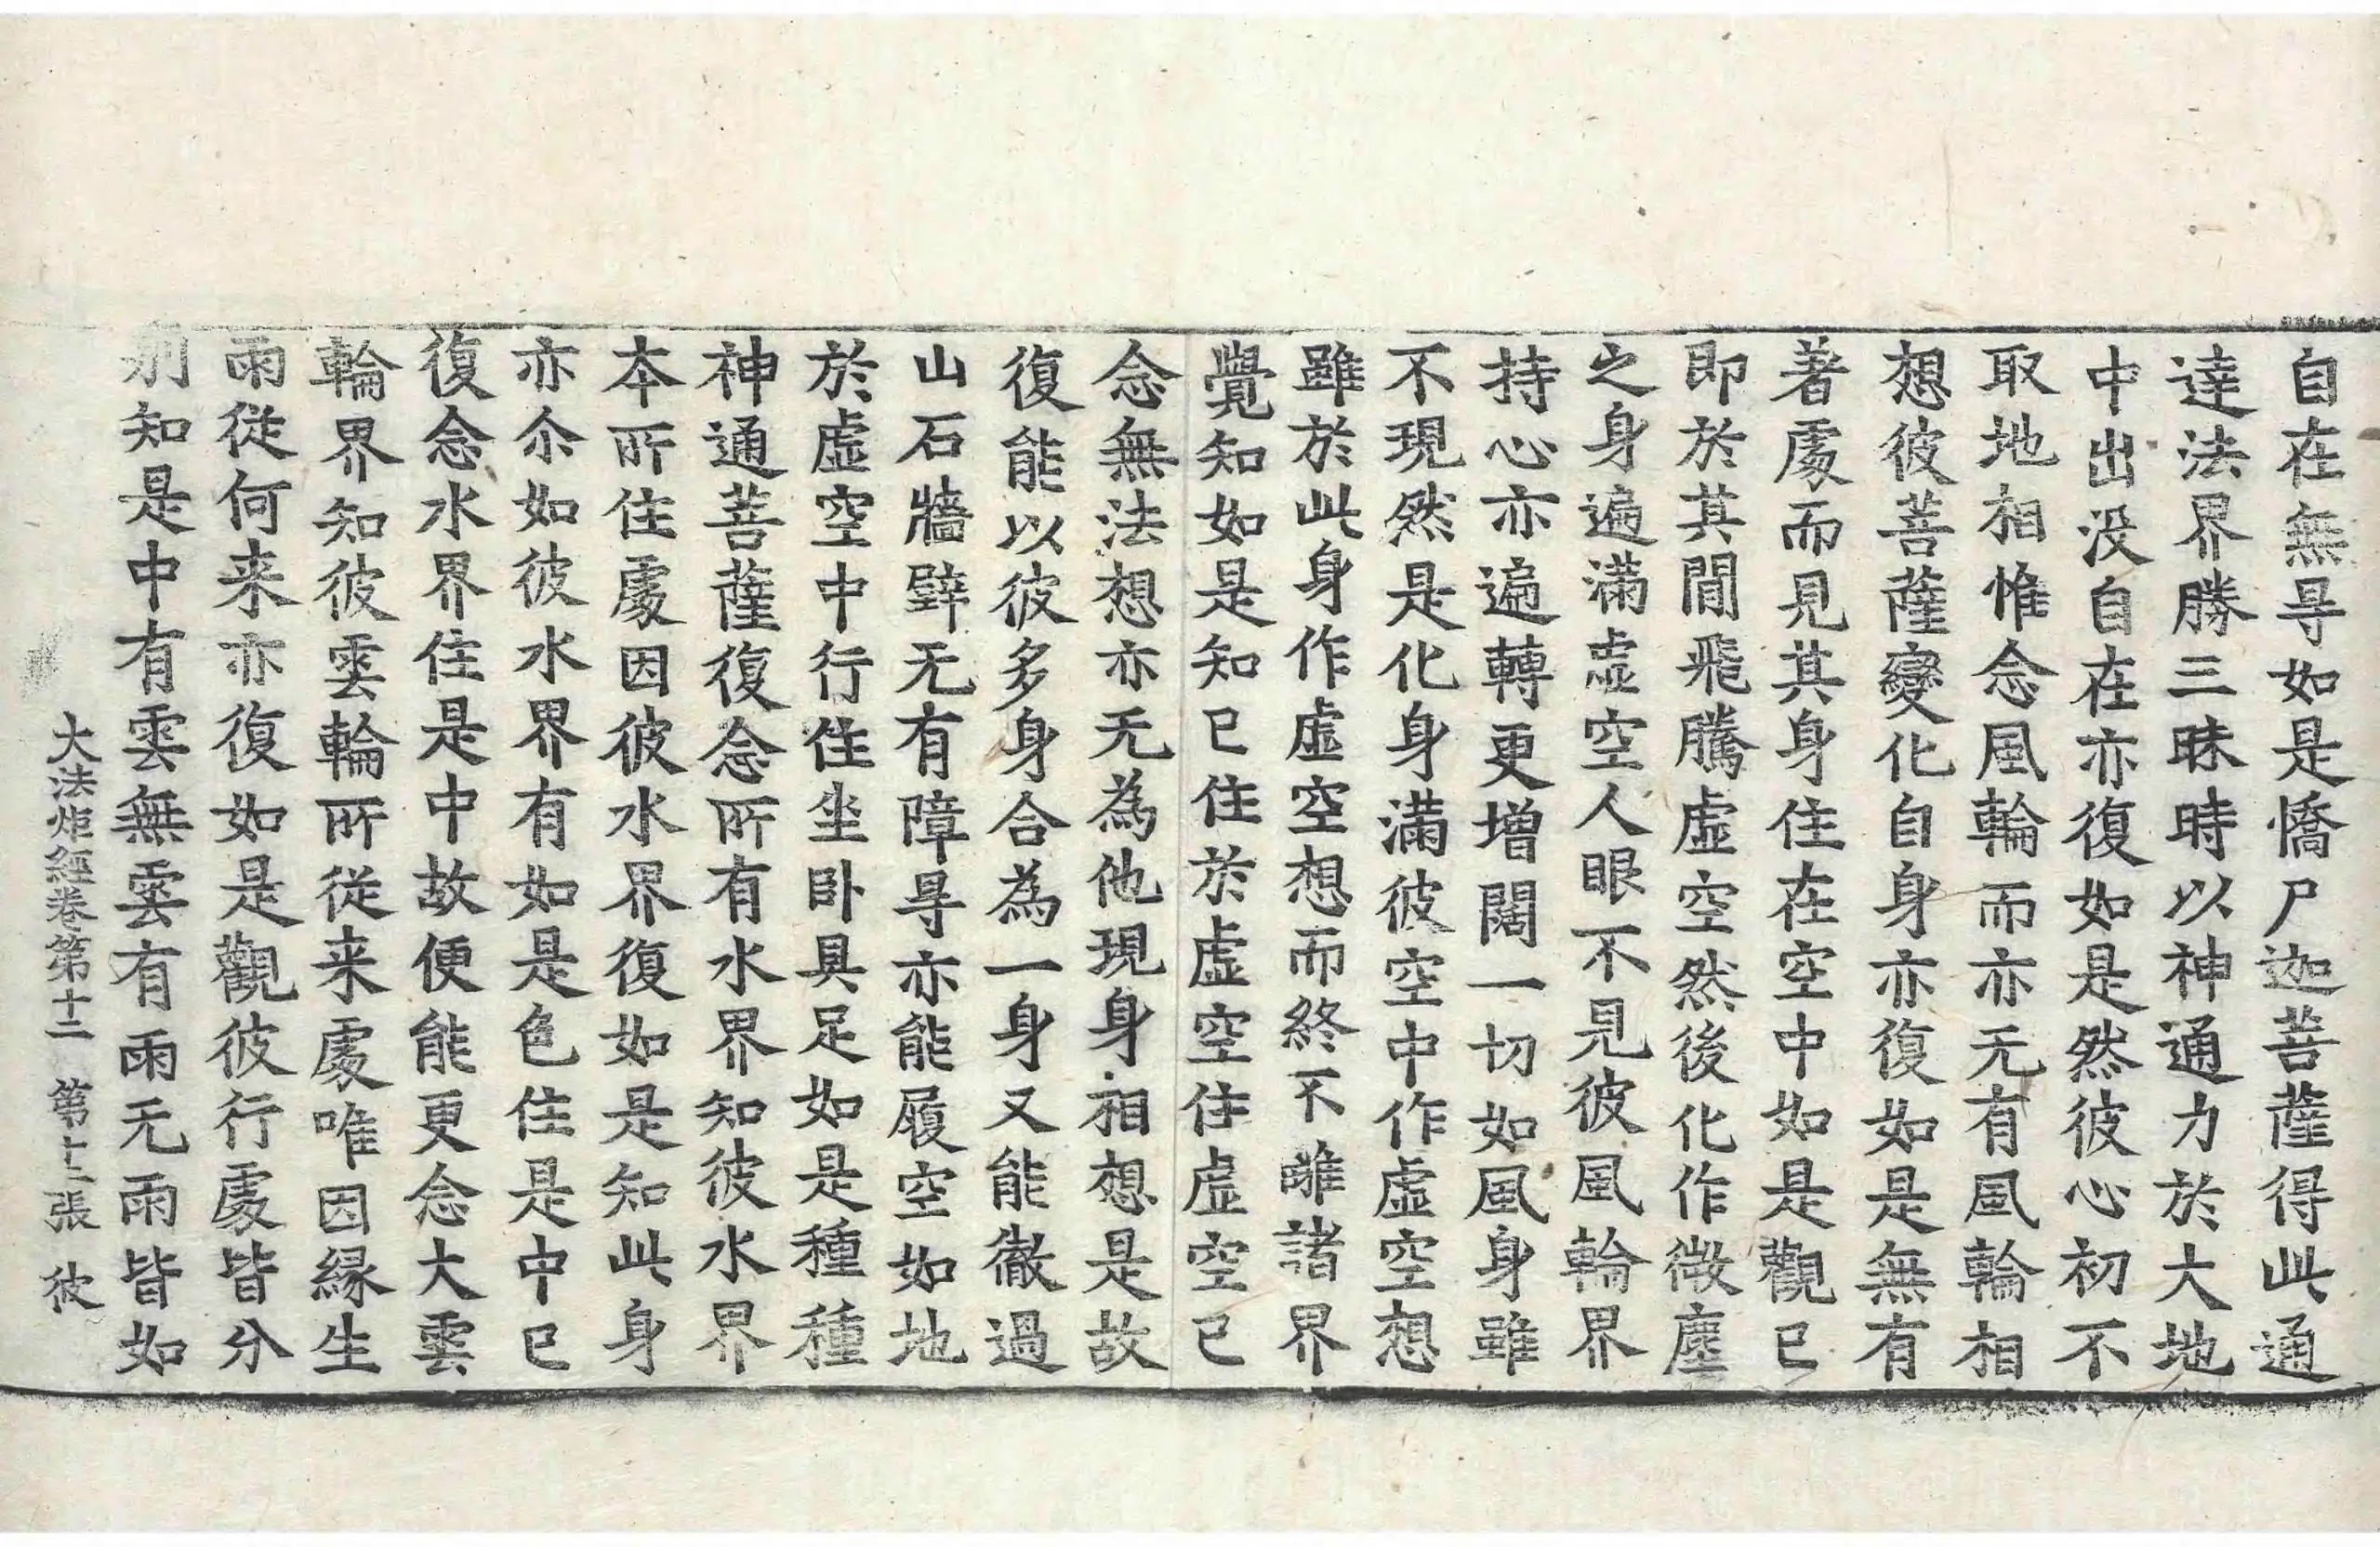 自在無㝵如是憍尸迦菩薩得此通
達法界勝三昧時以神通力於大地
中出没自在亦復如是然彼心初不
取地相惟念風輪而亦无有風輪相
想彼菩薩變化自身亦復如是無有
著處而見其身住在空中如是觀已
即於其閒飛騰虛空然後化作微塵
之身遍滿虛空人眼不見彼風輪界
持心亦遍轉更增闊一切如風身雖
不現然是化身滿彼空中作虛空想
雖於此身作虛空想而終不離諸界
覺知如是知已住於虛空住虛空已
念無法想亦无為他現身相想是故
復能以彼多身合為一身又能徹過
山石牆壁无有障㝵亦能履空如地
於虛空中行住坐卧具足如是種種
神通菩薩復念所有水界知彼水界
本所住處因彼水界復如是知此身
亦尒如彼水界有如是色住是中已
復念水界住是中故便能更念大雲
輪界知彼雲輪所從来處唯因緣生
雨從何来亦復如是觀彼行處皆分
別知是中有雲無雲有雨无雨皆如
大法炬經卷第十二　第十二張　彼